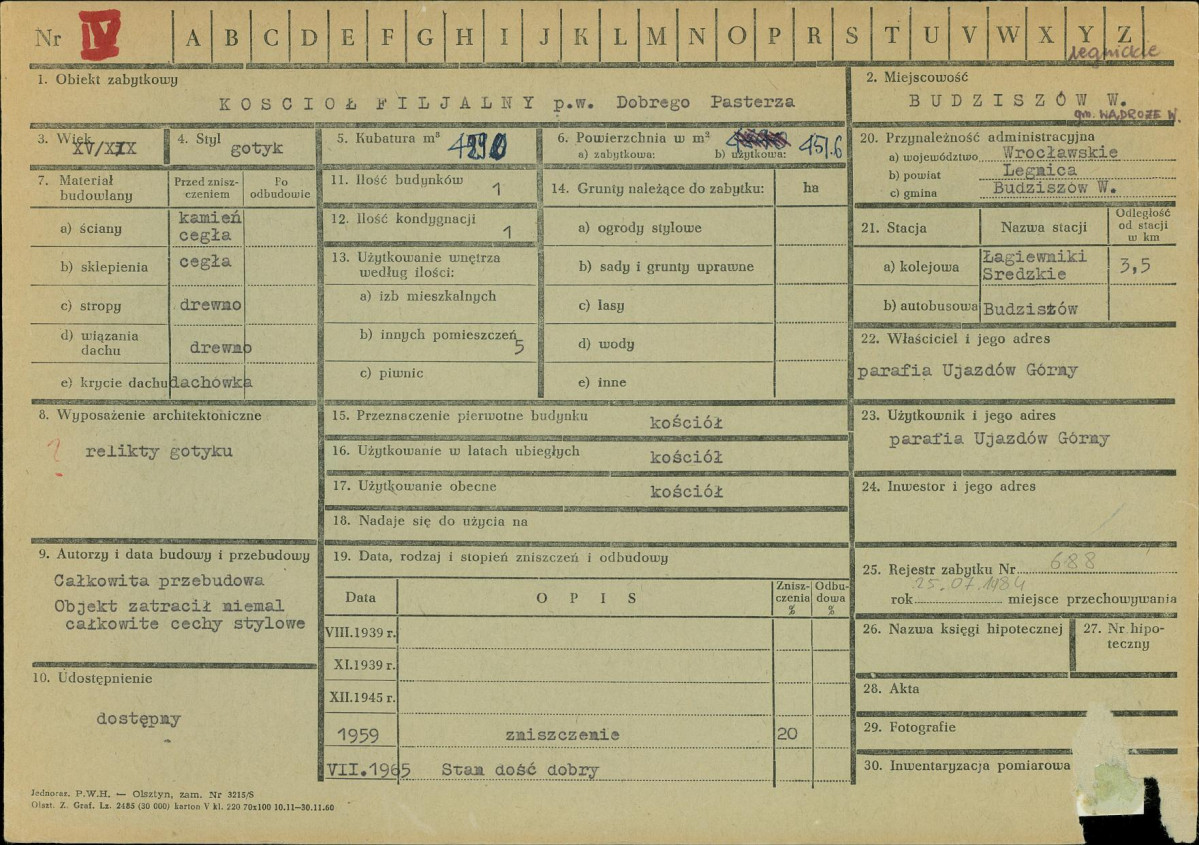 Nr IV A B C D E F G H I J K L M N O P R S T U V W X Y Z
legnickie
1. Obiekt zabytkowy
KOSCIOŁ FILJALNY p.w. Dobrego Pasterza
2. Miejscowość
BUDZISZÓW W.
gm. WĄDROŻE W.
3. Wiek
XV/XIX
4. Styl
gotyk
5. Kubatura m³
6. Powierzchnia w m²
a) zabytkowa: b) użytkowa: 457.6
7. Materiał budowlany
Przed zniszczeniem
Po odbudowie
a) ściany kamień cegła
b) sklepienia cegła
c) stropy drewno
d) wiązania dachu drewno
e) krycie dachu dachówka
8. Wyposażenie architektoniczne
? relikty gotyku
9. Autorzy i data budowy i przebudowy
Całkowita przebudowa
Objekt zatracił niemal
całkowite cechy stylowe
10. Udostępnienie
dostępny
11. Ilość budynków 1
12. Ilość kondygnacji 1
13. Użytkowanie wnętrza
według ilości:
a) izb mieszkalnych
b) innych pomieszczeń 5
c) piwnic
14. Grunty należące do zabytku: ha
a) ogrody stylowe
b) sady i grunty uprawne
c) lasy
d) wody
e) inne
15. Przeznaczenie pierwotne budynku kościół
16. Użytkowanie w latach ubiegłych kościół
17. Użytkowanie obecne kościół
18. Nadaje się do użycia na
19. Data, rodzaj i stopień zniszczeń i odbudowy
Data OPIS Zniszczenia % Odbudowa %
VIII.1939 r.
XI.1939 r.
XII.1945 r.
1959 zniszczenie 20
VII.1965 Stan dość dobry
20. Przynależność administracyjna
a) województwo Wrocławskie
b) powiat Legnica
c) gmina Budziszów W.
21. Stacja Nazwa stacji Odległość od stacji w km
a) kolejowa Łagiewniki Sredzkie 3,5
b) autobusowa Budziszów
22. Właściciel i jego adres
parafia Ujazdów Górny
23. Użytkownik i jego adres
parafia Ujazdów Górny
24. Inwestor i jego adres
25. Rejestr zabytku Nr 688
25.07.1984
rok miejsce przechowywania
26. Nazwa księgi hipotecznej
27. Nr hipoteczny
28. Akta
29. Fotografie
30. Inwentaryzacja pomiarowa
Jednoraz. P.W.H. — Olsztyn, zam. Nr 3215/S
Olszt. Z. Graf. Lz. 2485 (30 000) karton V kl. 220 70x100 10.11—30.11.60